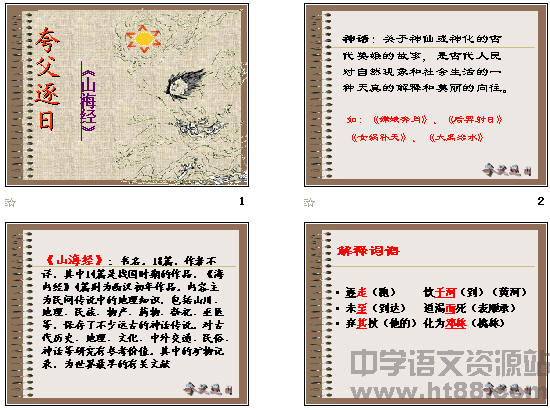 夸父逐日
《山海经》
1
神话：关于神仙或神化的古
代英雄的故事，是古代人民
对自然现象和社会生活的一
种天真的解释和美丽的向往。
如：《嫦娥奔月》、《后羿射日》
《女娲补天》、《大禹治水》
夸父逐日
2
《山海经》：书名。18篇，作者不
详，其中14篇是战国时期的作品，《海
内经》4篇则为西汉初年作品。内容主
为民间传说中的地理知识，包括山川、
地理、民族、物产、药物、祭祀、巫医
等，保存了不少远古的神话传说。对古
代历史、地理、文化、中外交通、民俗、
神话等研究有参考价值。其中的矿物记
录，为世界最早的有关文献
夸父逐日
解释词语
逐走（跑） 饮于河（到）（黄河）
未至（到达） 道渴而死（表顺承）
弃其杖（他的） 化为邓林（桃林）
夸父逐日
中学语文资源站
www.ht88.com